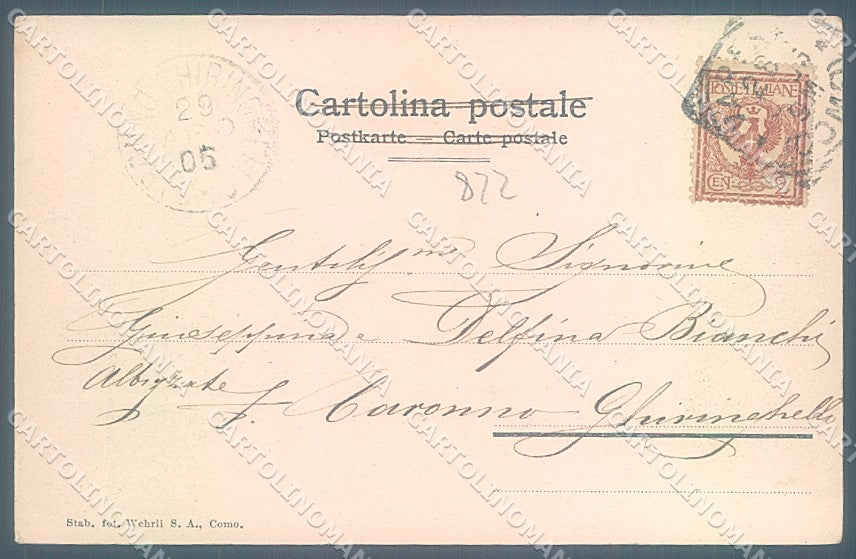 Cartolina postale
Postkarte = Carte postale
POSTE ITALIANE
CENT. 2
29
05
822
Gentiliss.me Signorine
Giuseppina e Delfina Bianchi
Albizzate f. Caronno Ghiringhello
Stab. fot. Wehrli S. A., Como.
CARTOLINOMANIA